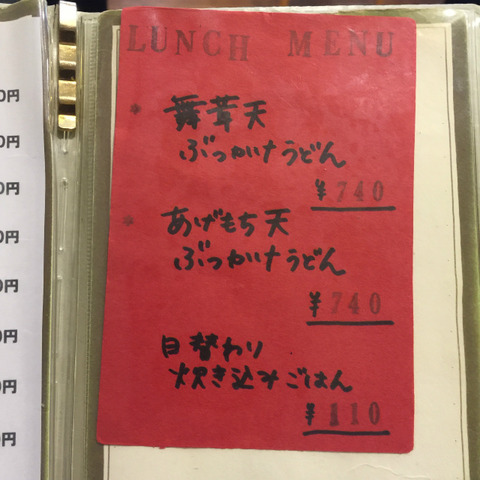 LUNCH MENU
* 舞茸天
ぶっかけうどん
¥740
* あげもち天
ぶっかけうどん
¥740
日替わり
炊き込みごはん
¥110
0円
0円
0円
0円
0円
0円
0円
0円